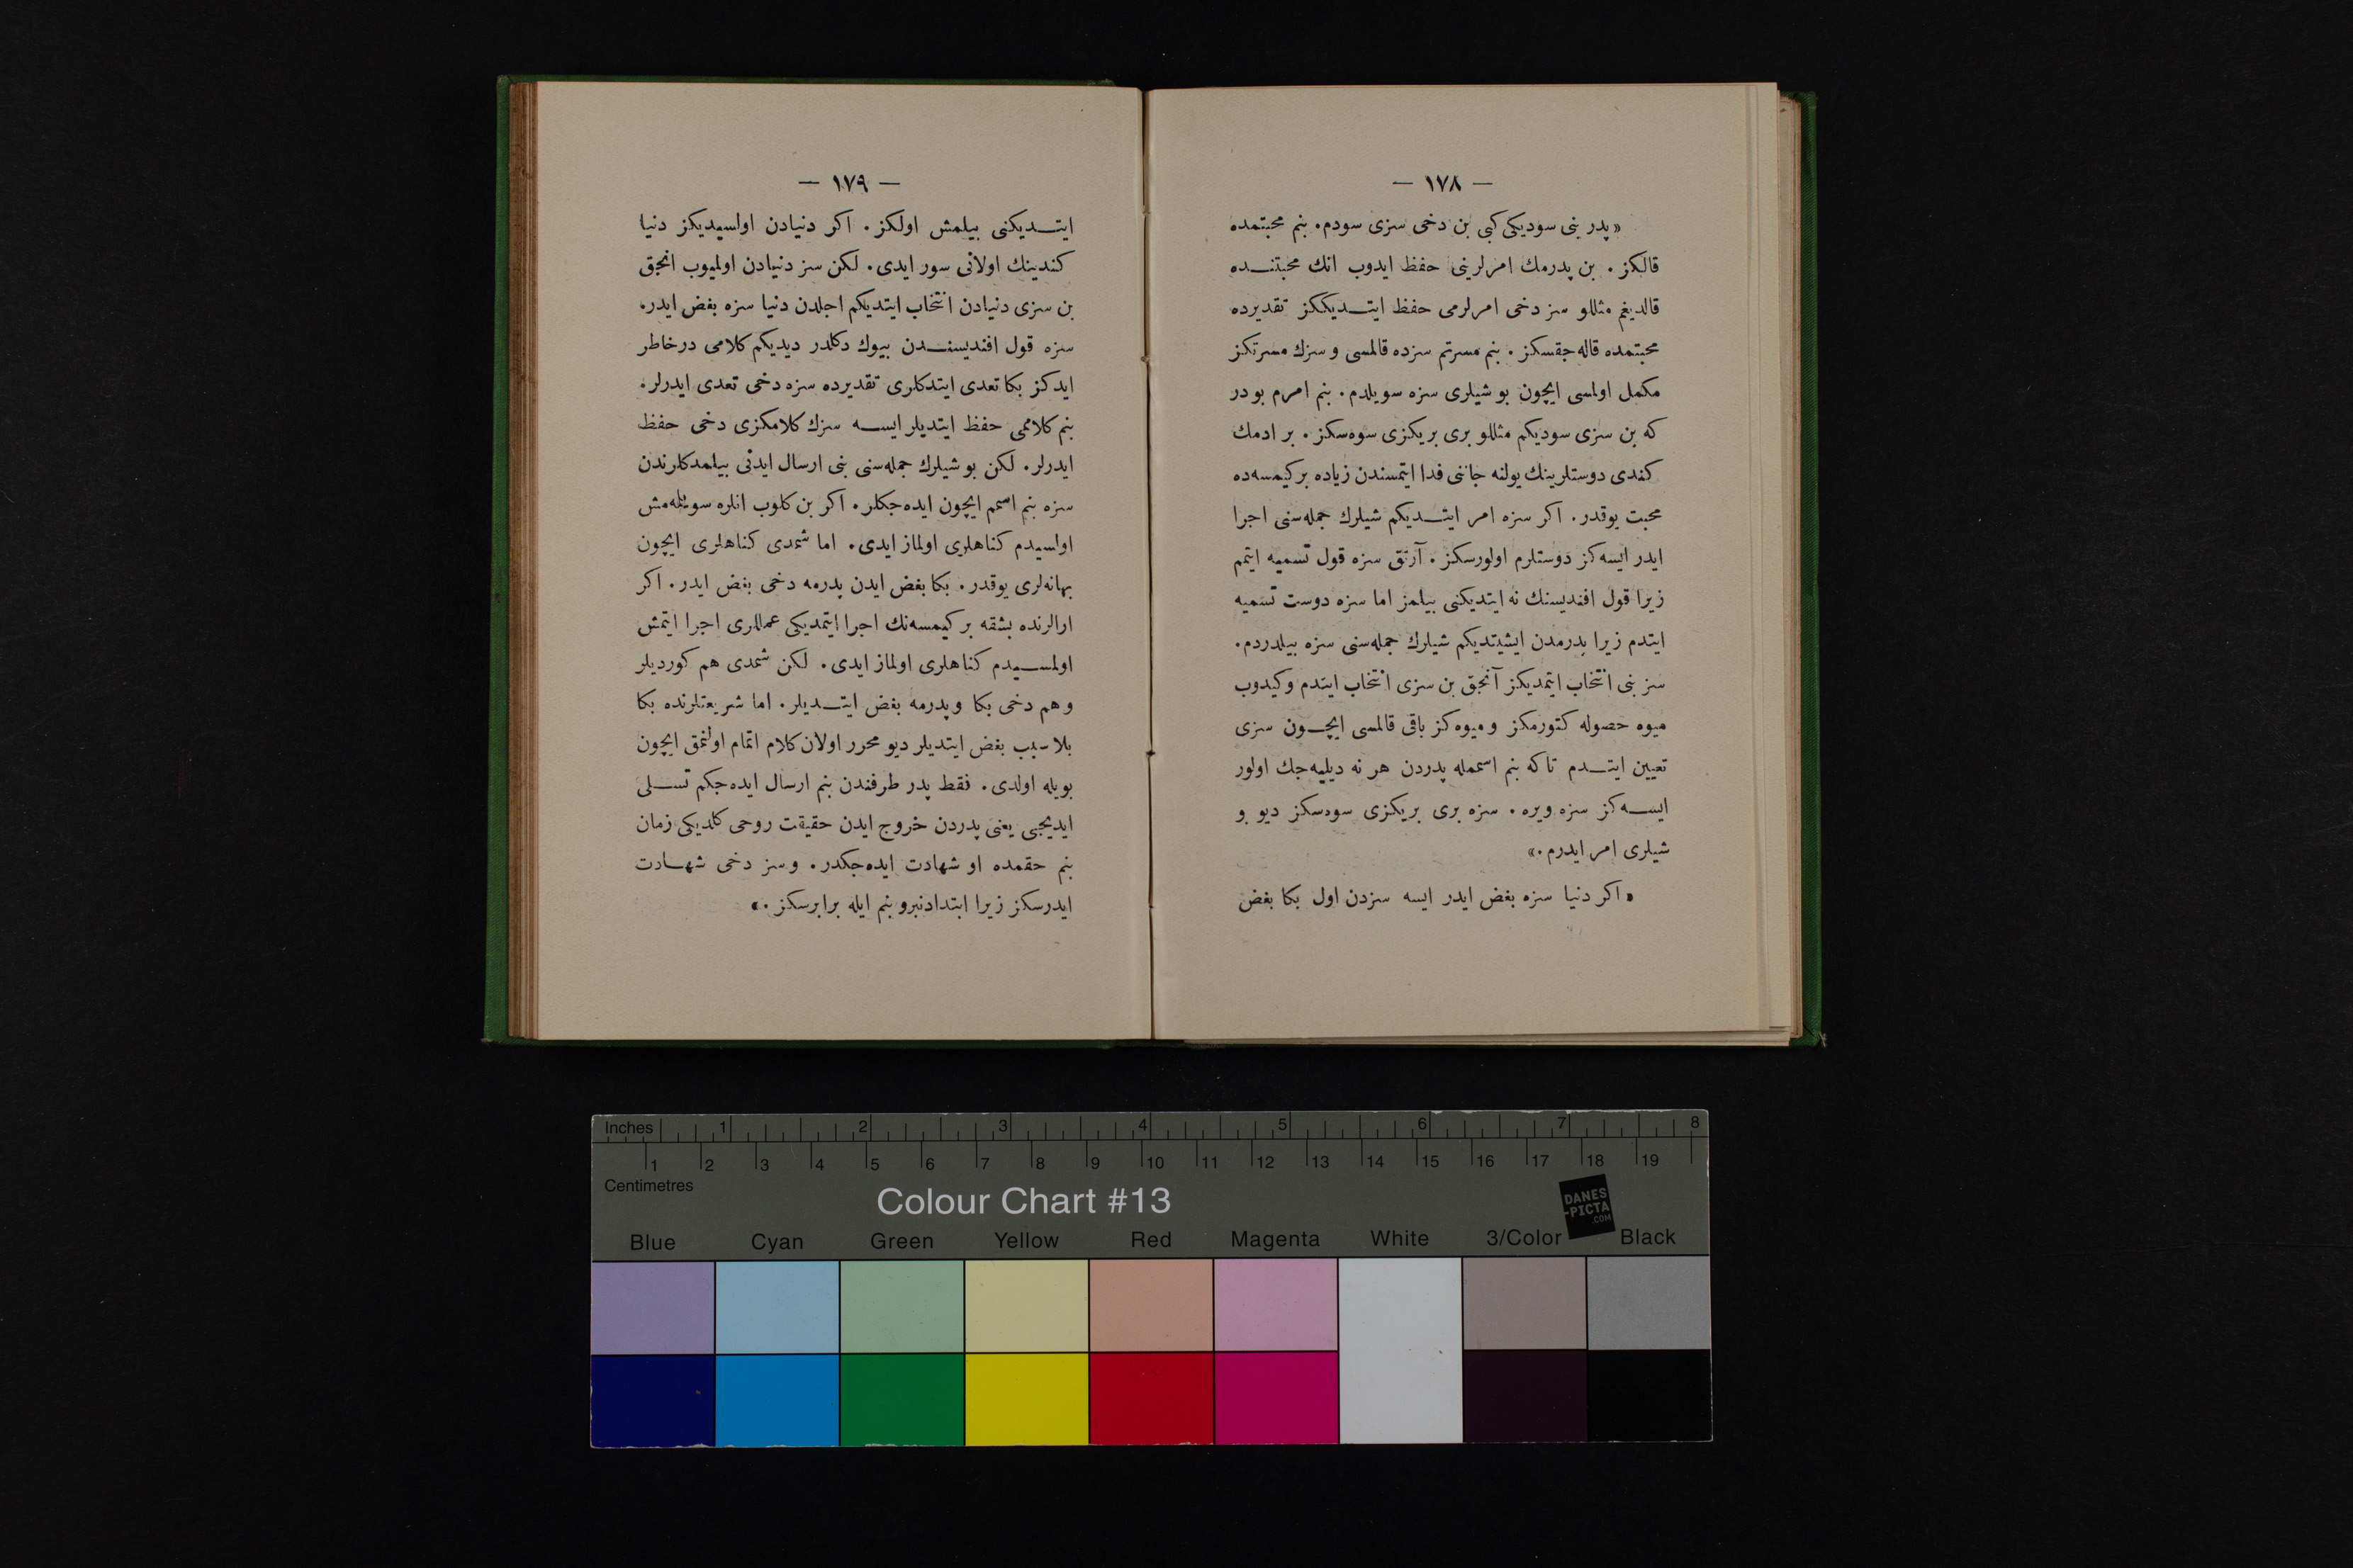 — ١٧٨ —
«پدر بنى سوديكى كبى بن دخى سزى سودم. بنم محبتمده
قالكز. بن پدرمك امرلرينى حفظ ايدوب انك محبتنده
قالديغم مثللو سز دخى امرلرمى حفظ ايتديككز تقديرده
محبتمده قاله جقسكز. بنم مسرتم سزده قالمسى و سزك مسرتكز
مكمل اولمسى ايچون بو شيلرى سزه سويلدم. بنم امرم بو در
كه بن سزى سوديكم مثللو برى بريكزى سوه‌سكز. بر ادمك
كندى دوستلرينك يولنه جاننى فدا ايتمسندن زياده بر كيمسه‌ده
محبت يوقدر. اكر سزه امر ايتديكم شيلرك جمله‌سنى اجرا
ايدر ايسه‌كز دوستلرم اولورسكز. آرتق سزه قول تسميه ايتمم
زيرا قول افنديسنك نه ايتديكنى بيلمز اما سزه دوست تسميه
ايتدم زيرا پدرمدن ايشيتديكم شيلرك جمله‌سنى سزه بيلدردم.
سز بنى انتخاب ايتمديكز آنجق بن سزى انتخاب ايتدم و كيدوب
ميوه حصوله كتورمكز و ميوه‌كز باقى قالمسى ايچون سزى
تعيين ايتدم تاكه بنم اسممله پدردن هر نه ديليه‌جك اولور
ايسه‌كز سزه ويره. سزه برى بريكزى سوه‌سكز ديو بو
شيلرى امر ايدرم.»
«اكر دنيا سزه بغض ايدر ايسه سزدن اول بكا بغض
— ١٧٩ —
ايتديكنى بيلمش اولكز. اكر دنيادن اولسيديكز دنيا
كندينك اولانى سور ايدى. لكن سز دنيادن اولميوب انجق
بن سزى دنيادن انتخاب ايتديكم اجلدن دنيا سزه بغض ايدر.
سزه قول افنديسندن بيوك دكلدر ديديكم كلامى درخاطر
ايدكز بكا تعدى ايتدكلرى تقديرده سزه دخى تعدى ايدرلر.
بنم كلاممى حفظ ايتديلر ايسه سزك كلامكزى دخى حفظ
ايدرلر. لكن بو شيلرك جمله‌سنى بنى ارسال ايدنى بيلمدكلرندن
سزه بنم اسمم ايچون ايده‌جكلر. اكر بن كلوب انلره سويله‌مش
اولسيدم كناهلرى اولماز ايدى. اما شمدى كناهلرى ايچون
بهانه‌لرى يوقدر. بكا بغض ايدن پدرمه دخى بغض ايدر. اكر
ارالرنده بشقه بر كيمسه‌نك اجرا ايتمديكى عمللرى اجرا ايتمش
اولمسيدم كناهلرى اولماز ايدى. لكن شمدى هم كورديلر
و هم دخى بكا و پدرمه بغض ايتديلر. اما شريعتلرنده بكا
بلا سبب بغض ايتديلر ديو محرر اولان كلام اتمام اولنمق ايچون
بويله اولدى. فقط پدر طرفندن بنم ارسال ايده‌جكم تسلى
ايديجى يعنى پدردن خروج ايدن حقيقت روحى كلديكى زمان
بنم حقمده او شهادت ايده‌جكدر. و سز دخى شهادت
ايدرسكز زيرا ابتدادنبرو بنم ايله برابرسكز.»
Inches 1 2 3 4 5 6 7 8
1 2 3 4 5 6 7 8 9 10 11 12 13 14 15 16 17 18 19
Centimetres
Colour Chart #13
DANES
-PICTA
.COM
Blue Cyan Green Yellow Red Magenta White 3/Color Black